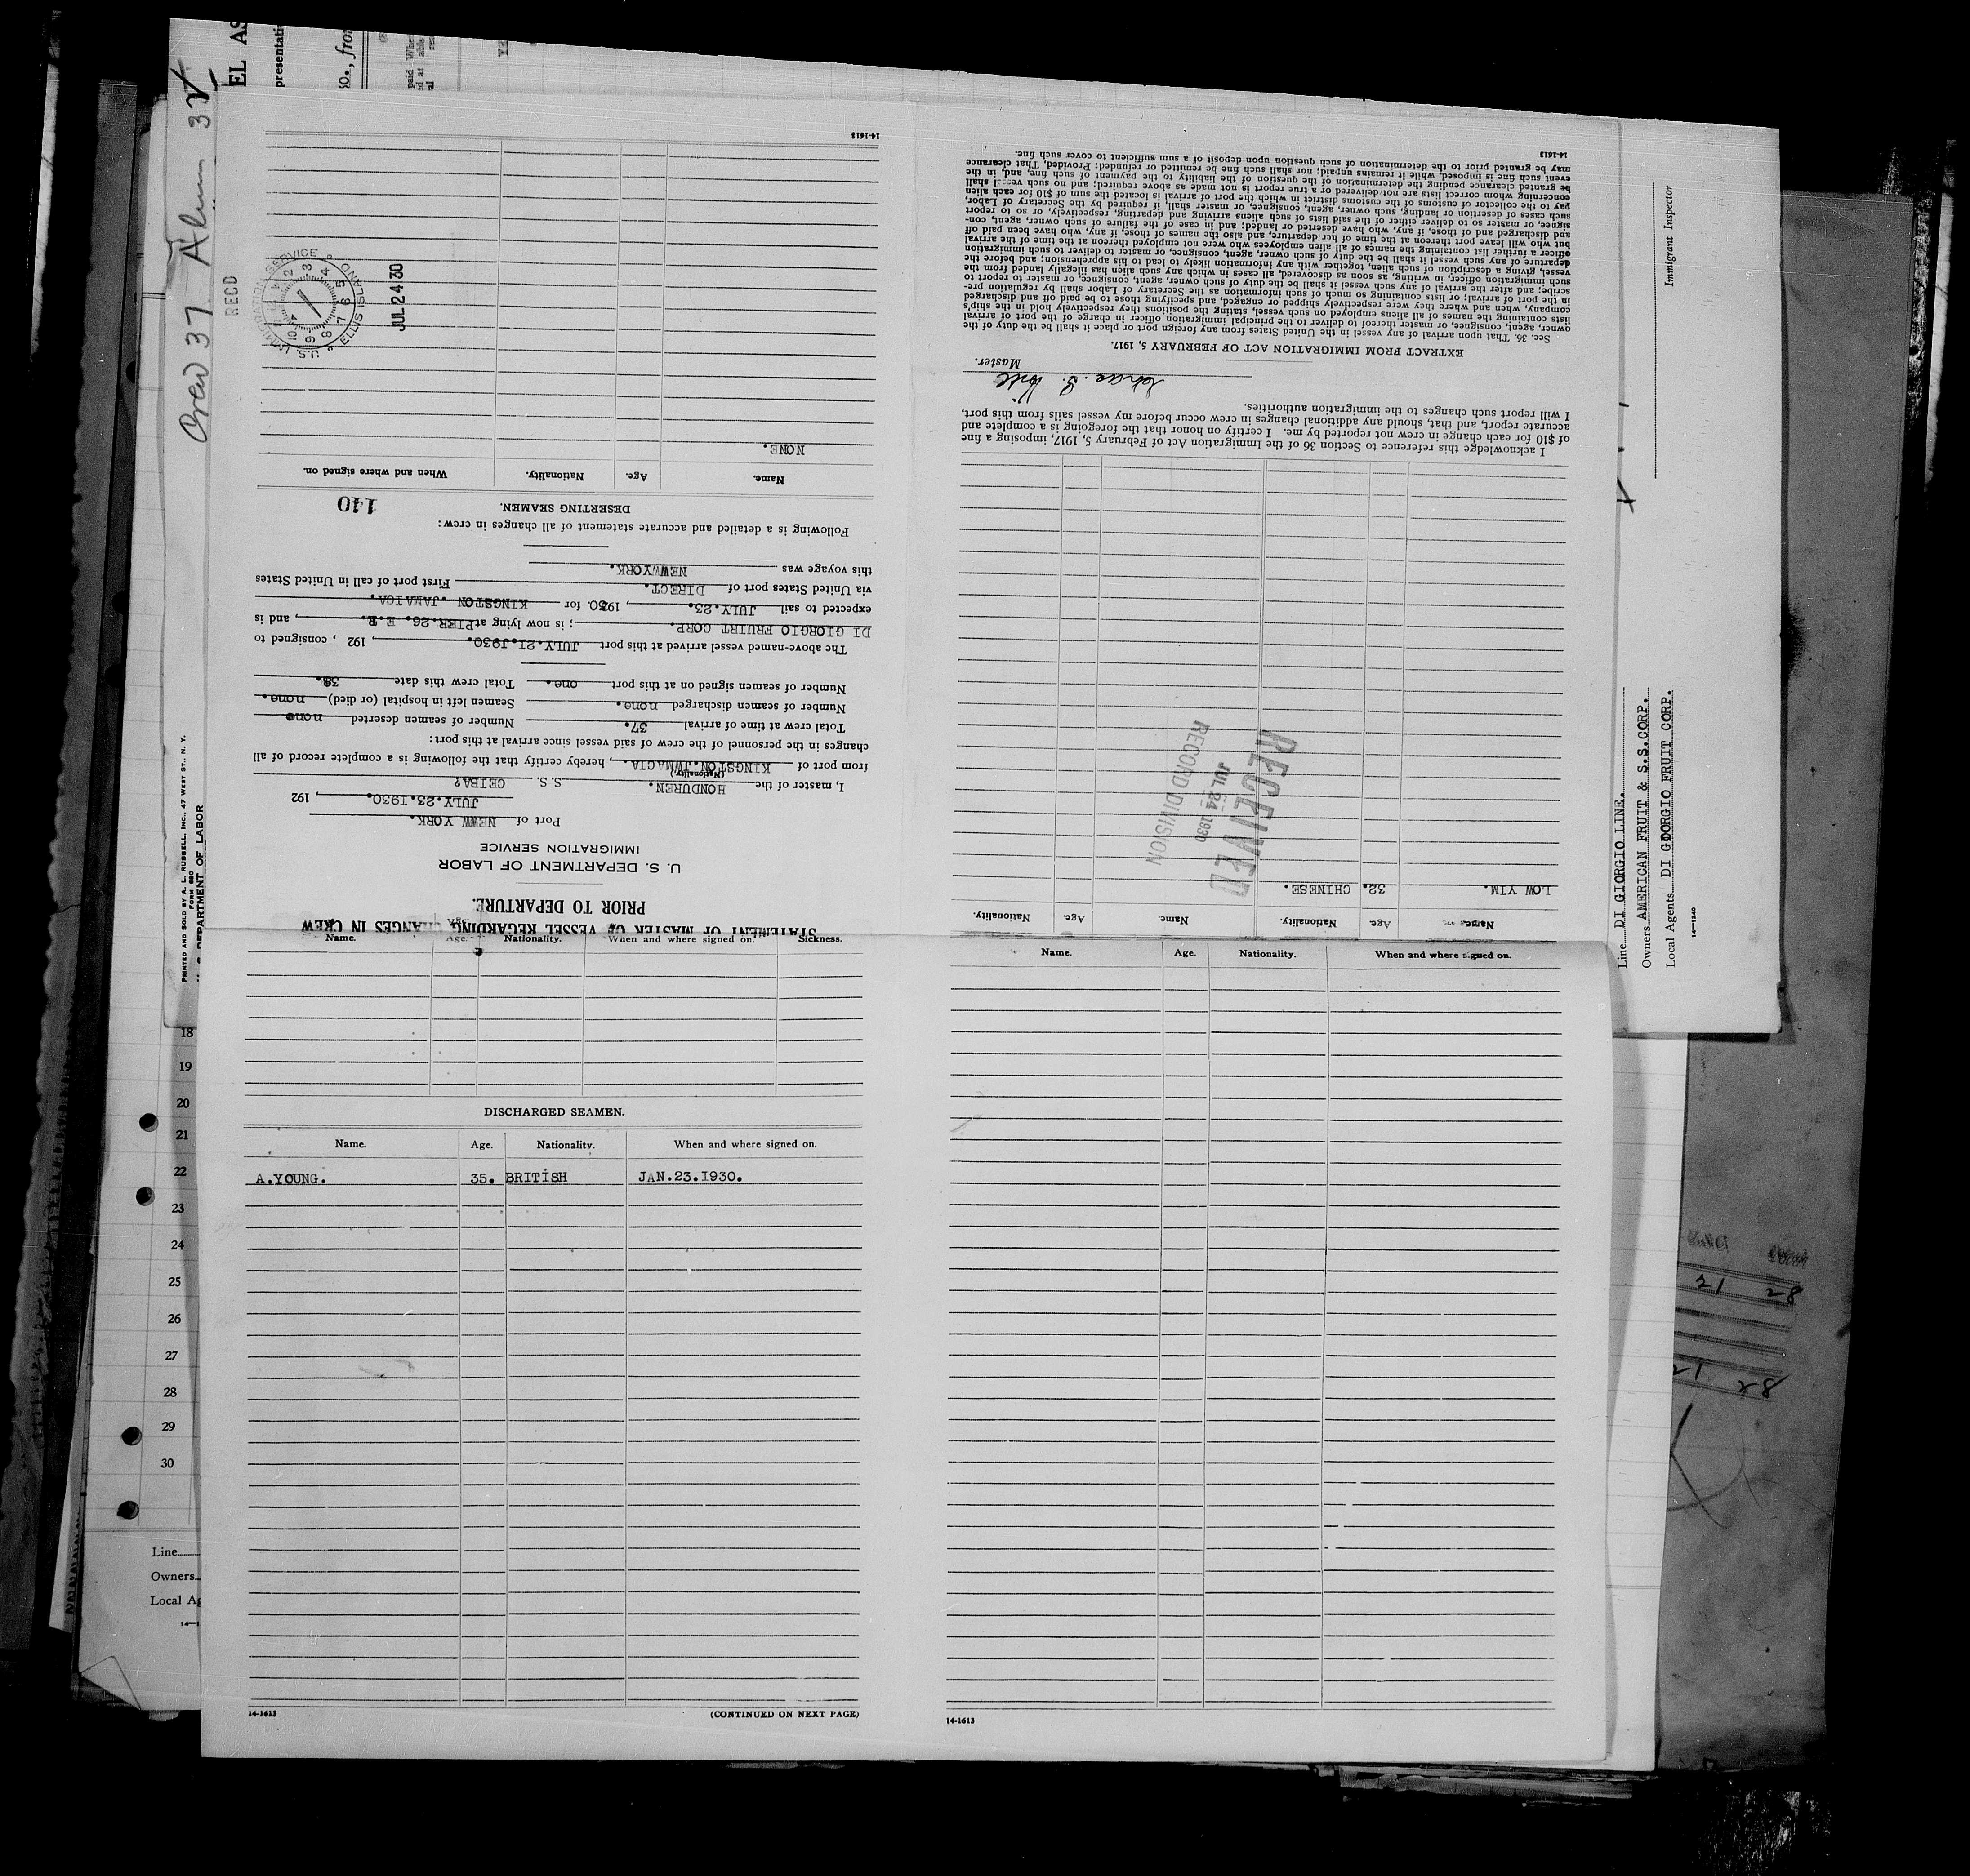 Crew 37 Album
EL AS
presentati
so., fro
RECD
IMMIGRATION SERVICE
U.S. ELLIS ISLAND
JUL 24 30
PRINTED AND SOLD BY A. L. RUSSELL, INC., 47 WEST ST., N. Y.
FORM 680
DEPARTMENT OF LABOR
STATEMENT OF MASTER OF VESSEL REGARDING CHANGES IN CREW
PRIOR TO DEPARTURE.
U. S. DEPARTMENT OF LABOR
IMMIGRATION SERVICE
Port of NEWW YORK.
JULY.23.I930. , 192
I, master of the HONDUREN. S. S. CEIBA?
(Nationality.)
from port of KINGSTON.JWMACIA. , hereby certify that the following is a complete record of all
changes in the personnel of the crew of said vessel since arrival at this port:
Total crew at time of arrival 37. Number of seamen deserted none
Number of seamen discharged none. Seamen left in hospital (or died) none.
Number of seamen signed on at this port one. Total crew this date 38.
The above-named vessel arrived at this port JULY.2I.J930. , 192 , consigned to
DI GIORGIO FRUIRT CORP. ; is now lying at PIER.26. E.R. , and is
expected to sail JULY.23. , 1930. for KINGSTON .JAMAICA.
via United States port of DIRECT. First port of call in United States
this voyage was NEWWYORK.
Following is a detailed and accurate statement of all changes in crew:
DESERTING SEAMEN.
140
Name. Age. Nationality. When and where signed on.
NONE.
14-1613
Name. Age. Nationality. Name. Age. Nationality.
LOW YIM. 32. CHINESE.
RECEIVED
JUL 24 1930
RECORD DIVISION
I acknowledge this reference to Section 36 of the Immigration Act of February 5, 1917, imposing a fine
of $10 for each change in crew not reported by me. I certify on honor that the foregoing is a complete and
accurate report, and that, should any additional changes in crew occur before my vessel sails from this port,
I will report such changes to the immigration authorities.
Master.
EXTRACT FROM IMMIGRATION ACT OF FEBRUARY 5, 1917.
Sec. 36. That upon arrival of any vessel in the United States from any foreign port or place it shall be the duty of the
owner, agent, consignee, or master thereof to deliver to the principal immigration officer in charge of the port of arrival
lists containing the names of all aliens employed on such vessel, stating the positions they respectively hold in the ship's
company, when and where they were respectively shipped or engaged, and specifying those to be paid off and discharged
in the port of arrival; or lists containing so much of such information as the Secretary of Labor shall by regulation pre-
scribe; and after the arrival of any such vessel it shall be the duty of such owner, agent, consignee, or master to report to
such immigration officer, in writing, as soon as discovered, all cases in which any such alien has illegally landed from the
vessel, giving a description of such alien, together with any information likely to lead to his apprehension; and before the
departure of any such vessel it shall be the duty of such owner, agent, consignee, or master to deliver to such immigration
officer a further list containing the names of all alien employees who were not employed thereon at the time of the arrival
but who will leave port thereon at the time of her departure, and also the names of those, if any, who have been paid off
and discharged and of those, if any, who have deserted or landed; and in case of the failure of such owner, agent, con-
signee, or master so to deliver either of the said lists of such aliens arriving and departing, respectively, or so to report
such cases of desertion or landing, such owner, agent, consignee, or master shall, if required by the Secretary of Labor,
pay to the collector of customs of the customs district in which the port of arrival is located the sum of $10 for each alien
concerning whom correct lists are not delivered or a true report is not made as above required; and no such vessel shall
be granted clearance pending the determination of the question of the liability to the payment of such fine, and, in the
event such fine is imposed, while it remains unpaid; nor shall such fine be remitted or refunded: Provided, That clearance
may be granted prior to the determination of such question upon deposit of a sum sufficient to cover such fine.
14-1613
Immigrant Inspector
Line DI GIORGIO LINE.
Owners AMERICAN FRUIT & S.S.CORP.
Local Agents DI GDORGIO FRUIT CORP.
14-1240
Name. Age. Nationality. When and where signed on. Sickness.
DISCHARGED SEAMEN.
Name. Age. Nationality. When and where signed on.
A.YOUNG. 35. BRITISH JAN.23.I930.
14-1613 (CONTINUED ON NEXT PAGE)
Name. Age. Nationality. When and where signed on.
14-1613
18
19
20
21
22
23
24
25
26
27
28
29
30
Line
Owners
Local Ag
21 28
21 28